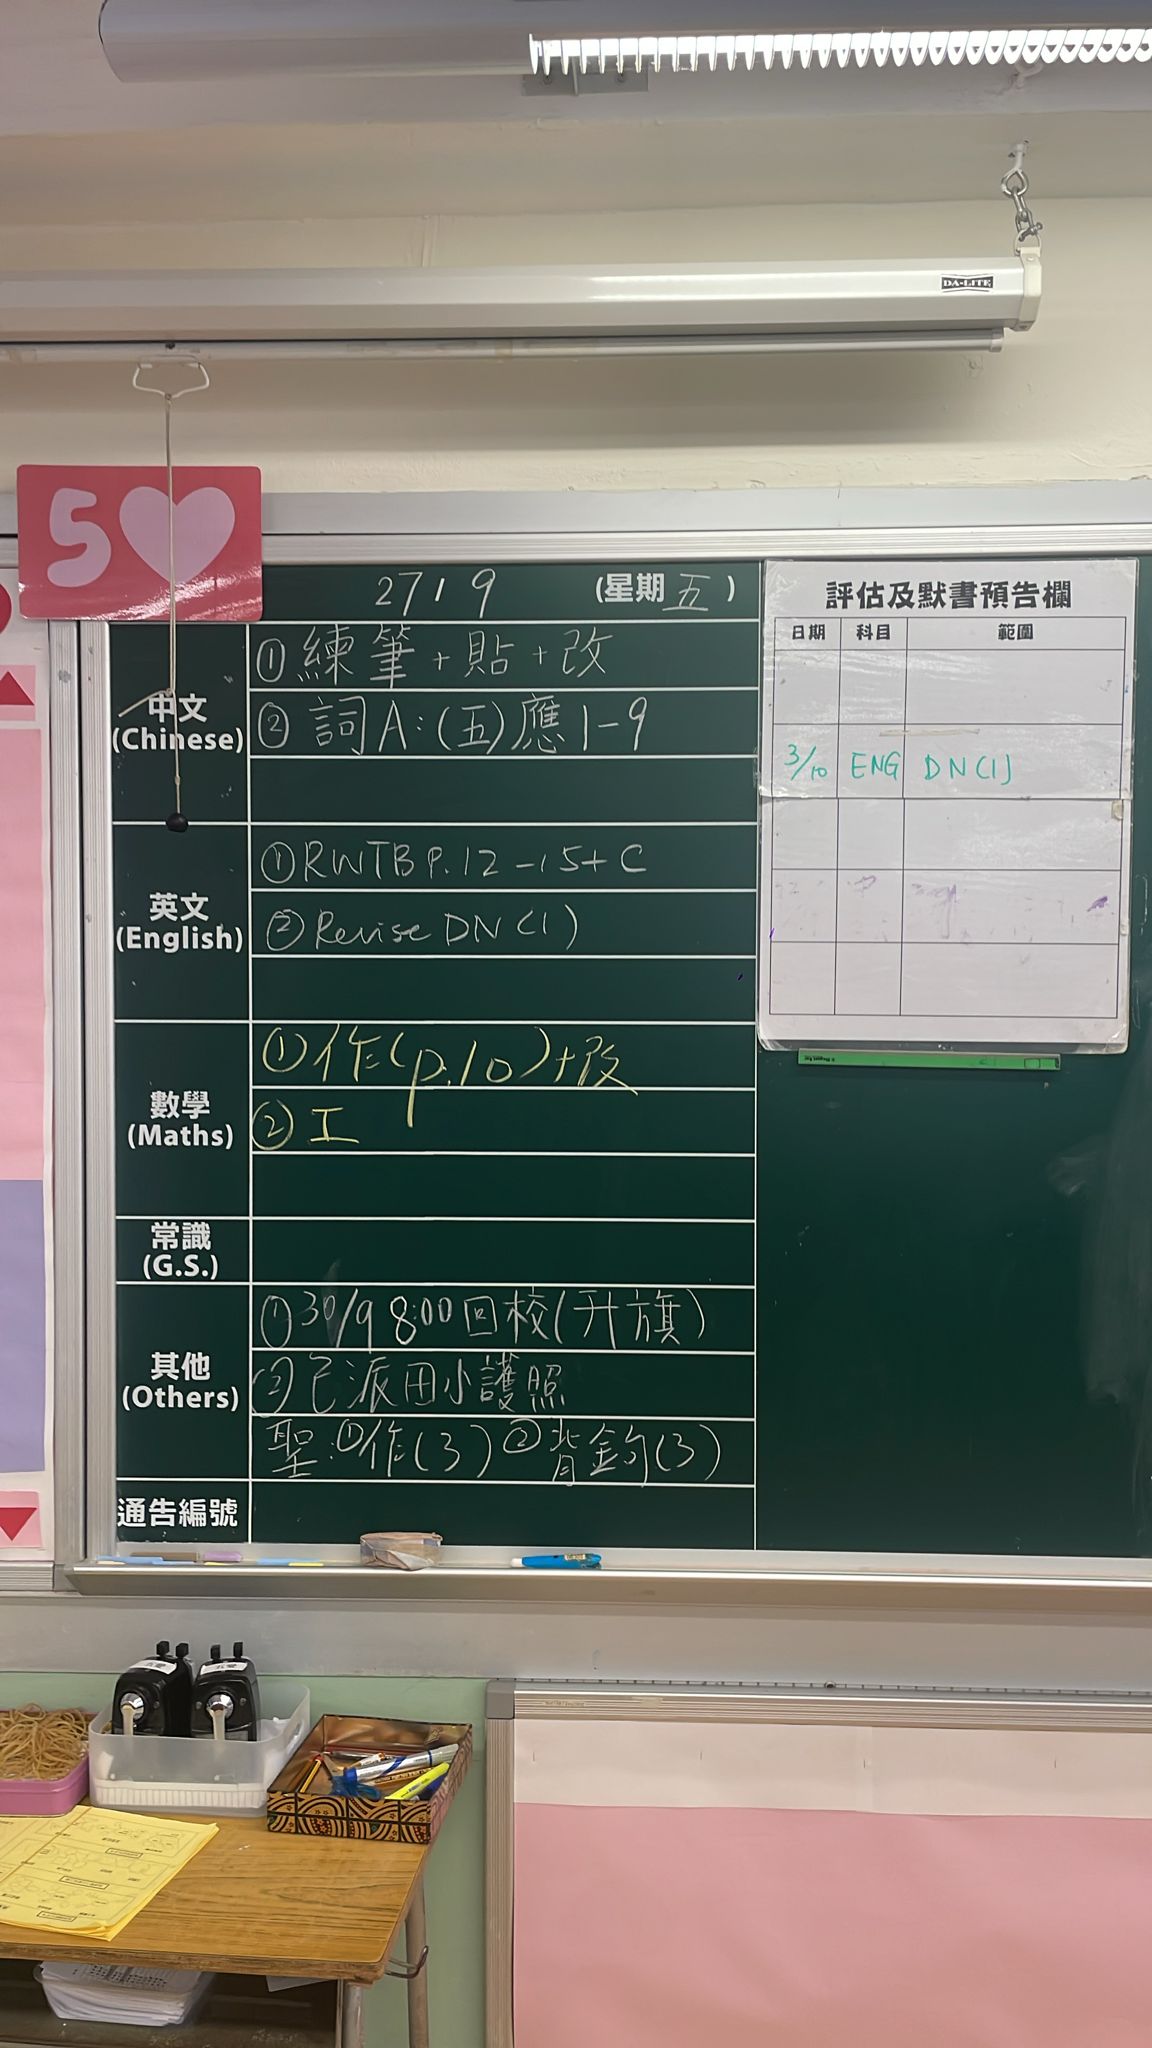 DA-LITE
5
27/9 (星期五)
中文 (Chinese)
①練筆+貼+改
②詞A:(五)應1-9
英文 (English)
①RWTB P.12-15+C
②Revise DN(1)
數學 (Maths)
①作(p.10)+改
②工
常識 (G.S.)
其他 (Others)
①30/9 8:00回校(升旗)
②已派田小護照
聖:①作(3) ②背金句(3)
通告編號
評估及默書預告欄
日期 科目 範圍
3/10 ENG DN(1)